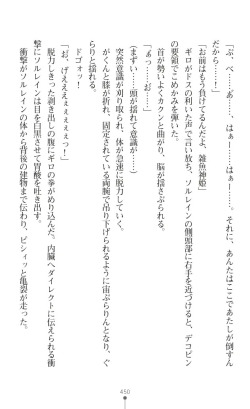 「ぷ、べっ、あ゛……、はぁ……はぁー……。それに、あんたはここであたしが倒すん
だから……！」
「お前はもう負けてるんだよ、雑魚神姫」
ギロがドスの利いた声で言い放つ、ソルレインの側頭部に右手を近づけると、デコピン
の要領でこめかみを弾いた。
首が勢いよくカクンと曲がり、脳が揺さぶられる。
「あっ……お……」
（まずい……頭が揺れて意識が……）
突然意識が刈り取られ、体が急速に脱力していく。
がくんと膝が折れ、固定されている両腕で吊り下げられるように宙ぶらりんとなり、ぐ
らりと揺れる。
ドゴォッ！
「お、げええぇぇぇぇぇっ！」
脱力しきった剥き出しの腹にギロの拳がめり込んだ。内臓へダイレクトに与えられる衝
撃にソルレインは目を白黒させて胃酸を吐き出す。
衝撃がソルレインの体から背後の建物まで伝わり、ビシィッと亀裂が走った。
450